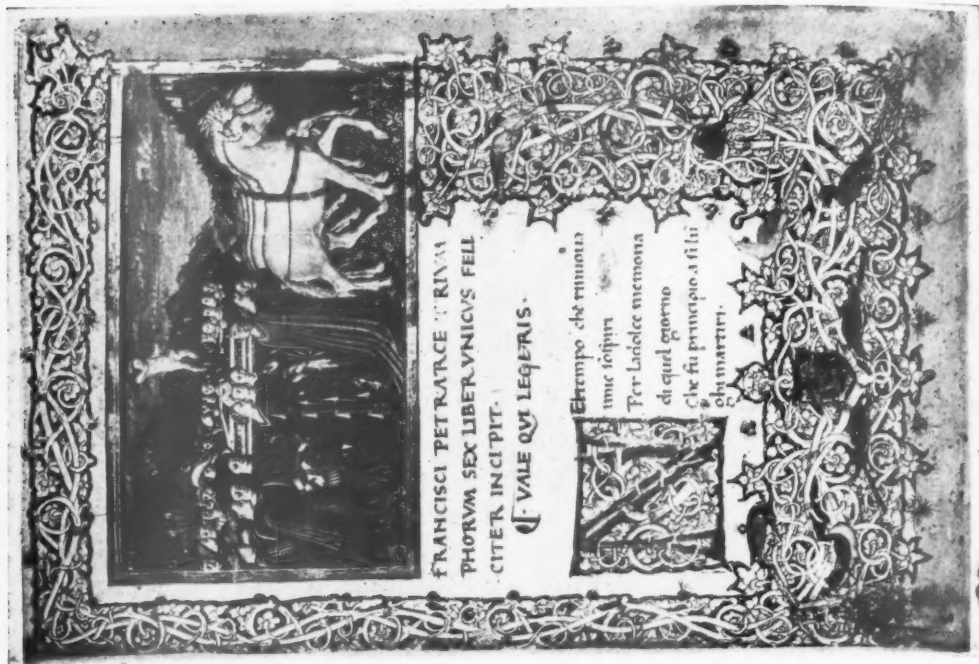 FRANCISCI PETRARCE TRIVM
PHORVM SEX LIBER VNICVS FELI
CITER INCIPIT.
VALE QVI LEGERIS.
NEltempo chē rinnoua
imie sospiri
Per ladolce memoria
di quel giorno
Che fu principio a si lū
ghi martiri.